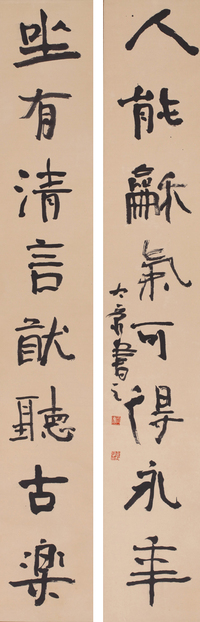 人能龢氣可得永年
大康書之
坐有清言猷聽古楽